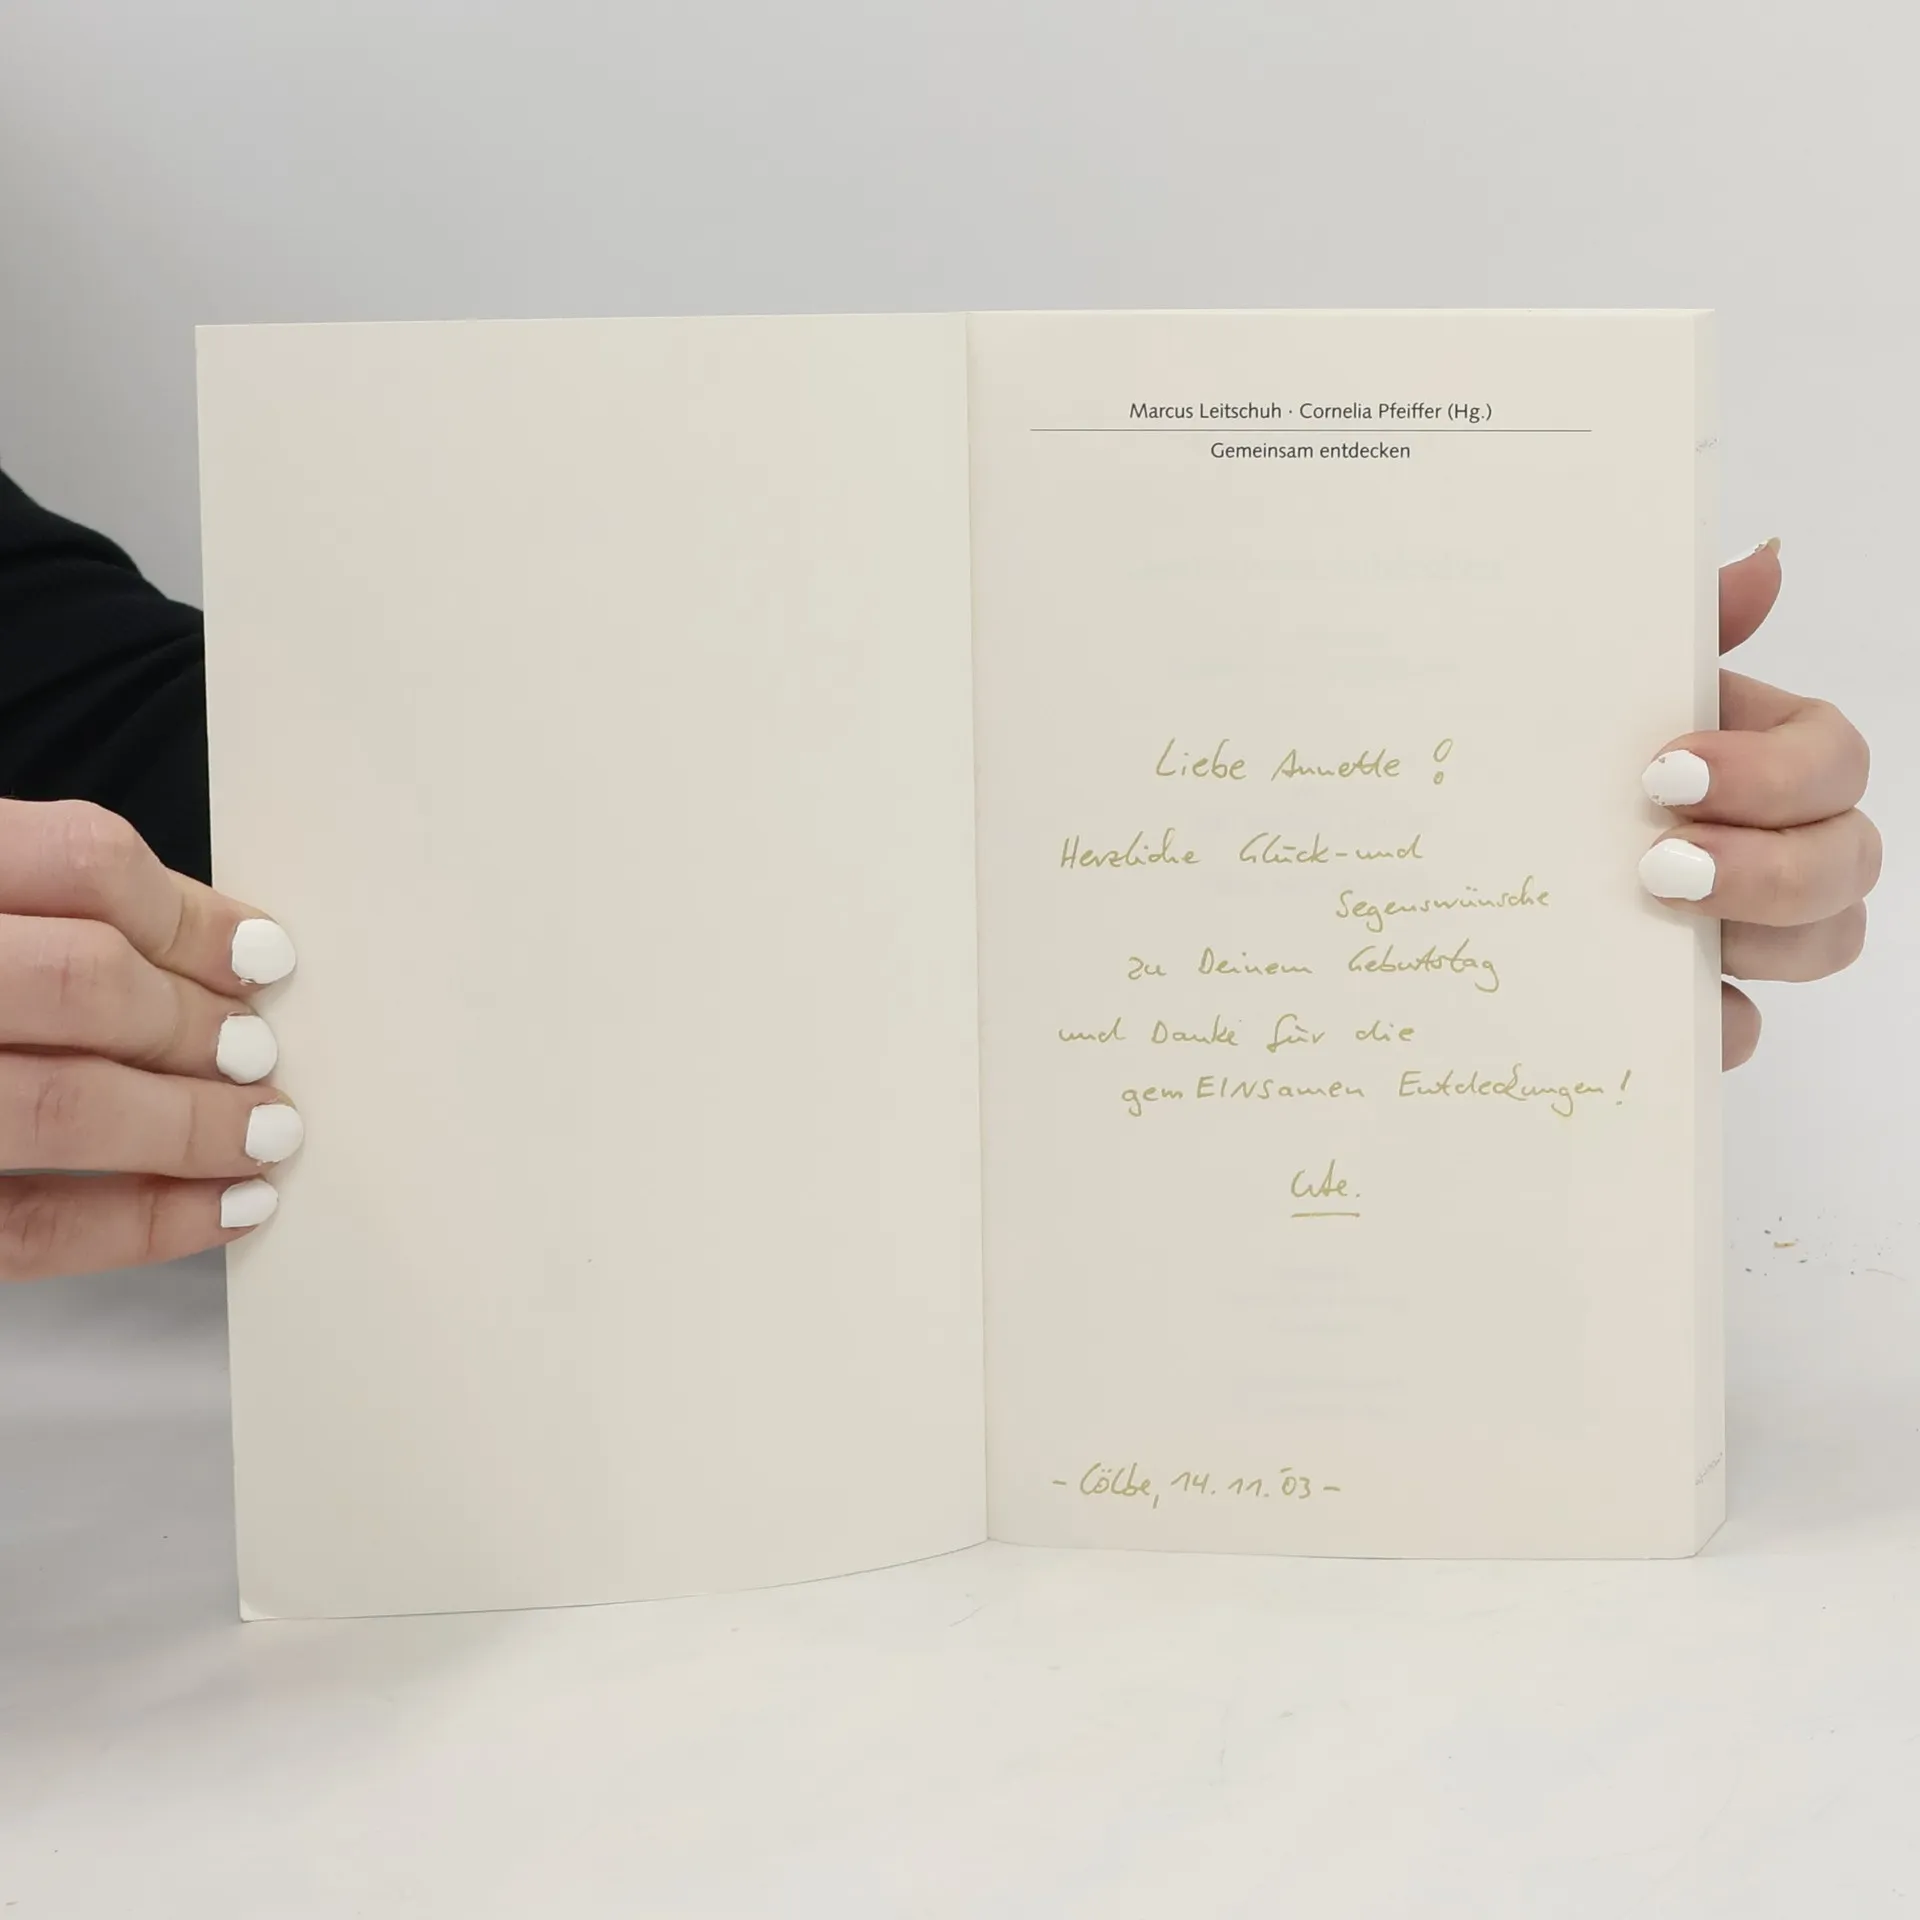 Marcus Leitschuh · Cornelia Pfeiffer (Hg.)
Gemeinsam entdecken
Liebe Annette!
Herzliche Glück-und
Segenswünsche
zu Deinem Geburtstag
und Danke für die
gemEINSamen Entdeckungen!
Ute.
- Cölbe, 14.11.03 -